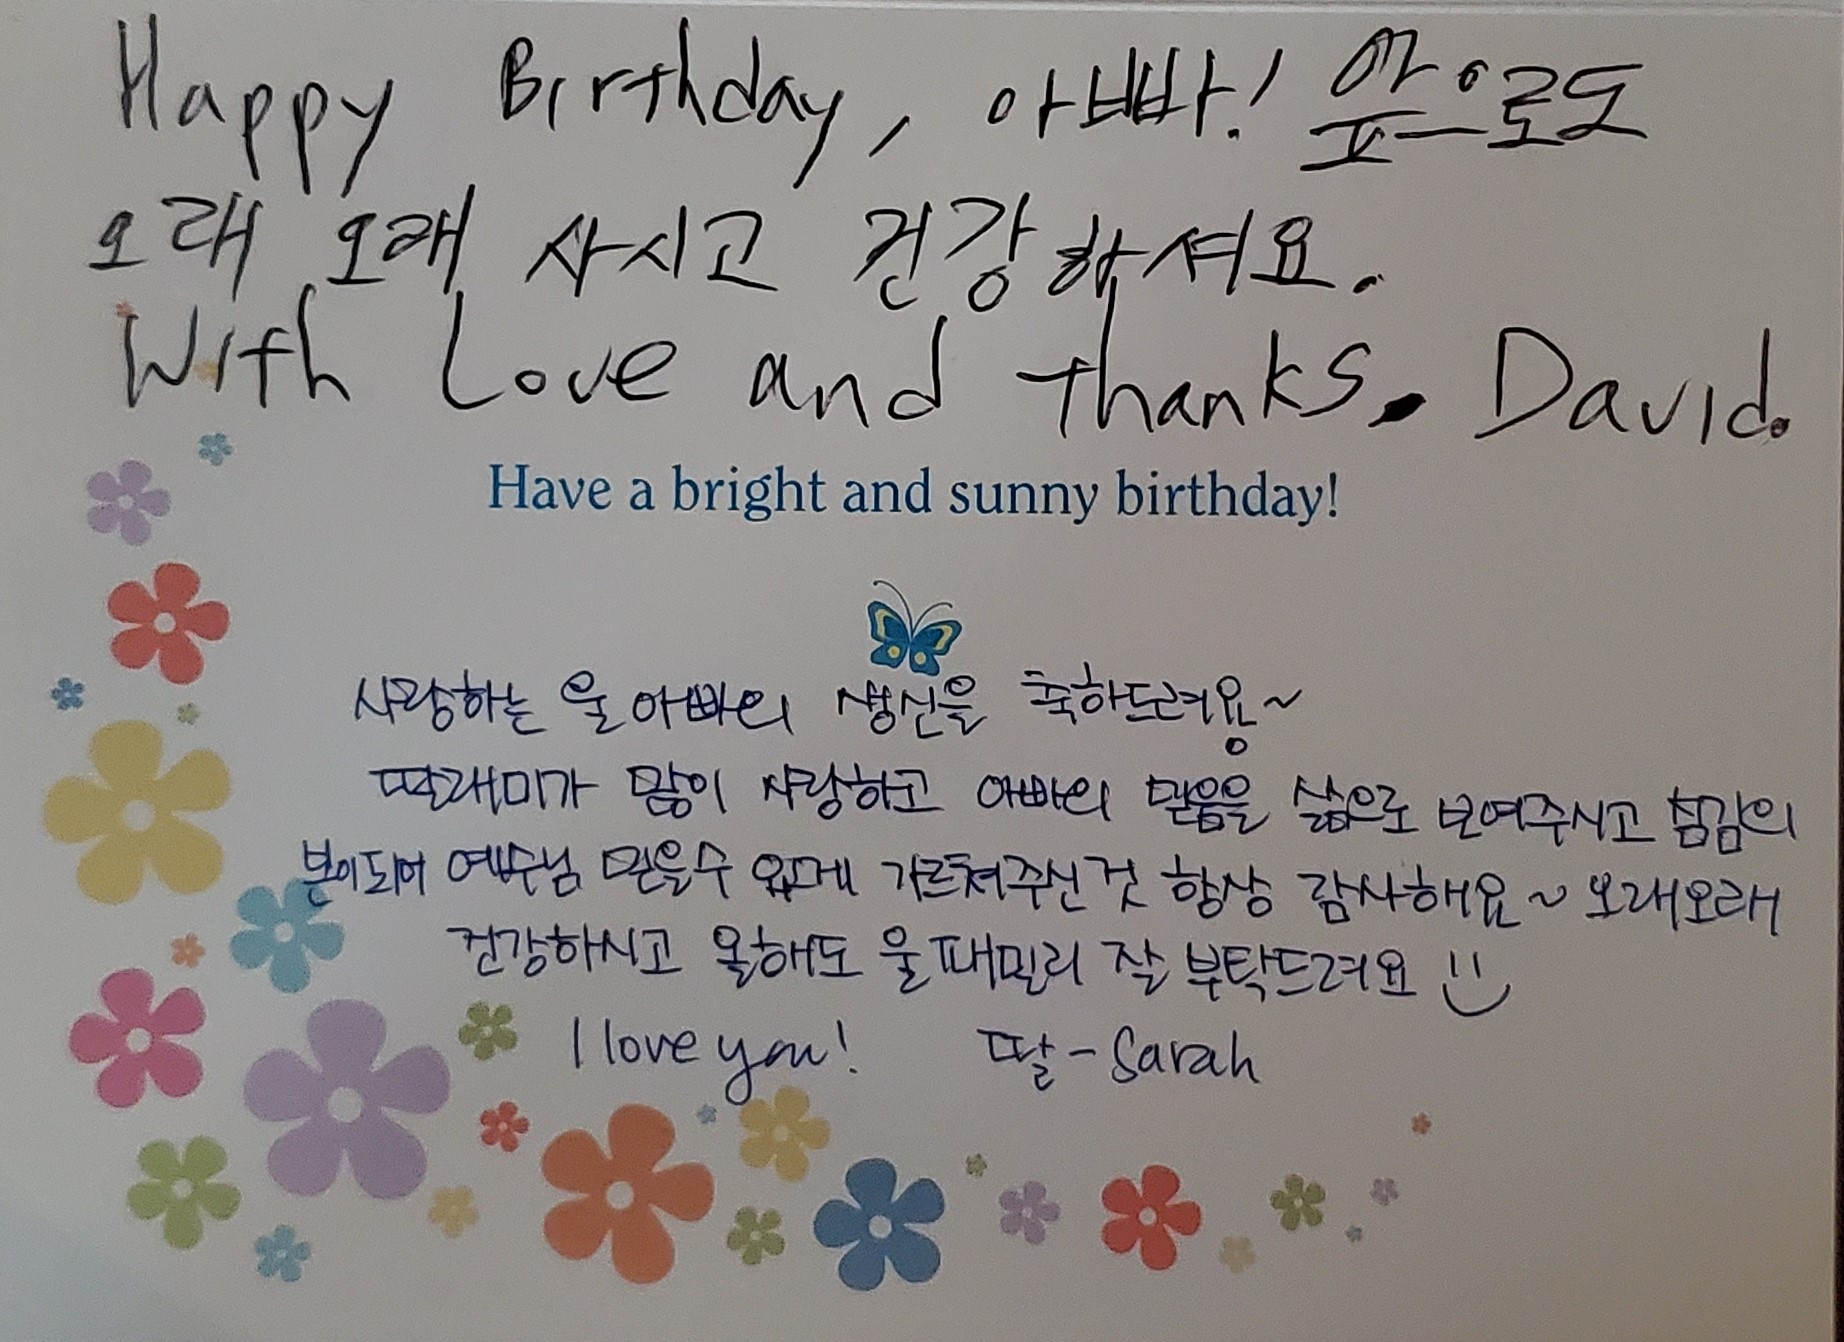 Happy Birthday, 아빠! 앞으로도
오래 오래 사시고 건강하셔요.
With Love and thanks. David.
Have a bright and sunny birthday!
사랑하는 울 아빠의 생신을 축하드려용~
딸래미가 많이 사랑하고 아빠의 믿음을 삶으로 보여주시고 섬김의
본이되어 예수님 믿을수 있게 가르쳐주신것 항상 감사해요~ 오래오래
건강하시고 올해도 울패밀리 잘 부탁드려요
I love you! 딸-Sarah